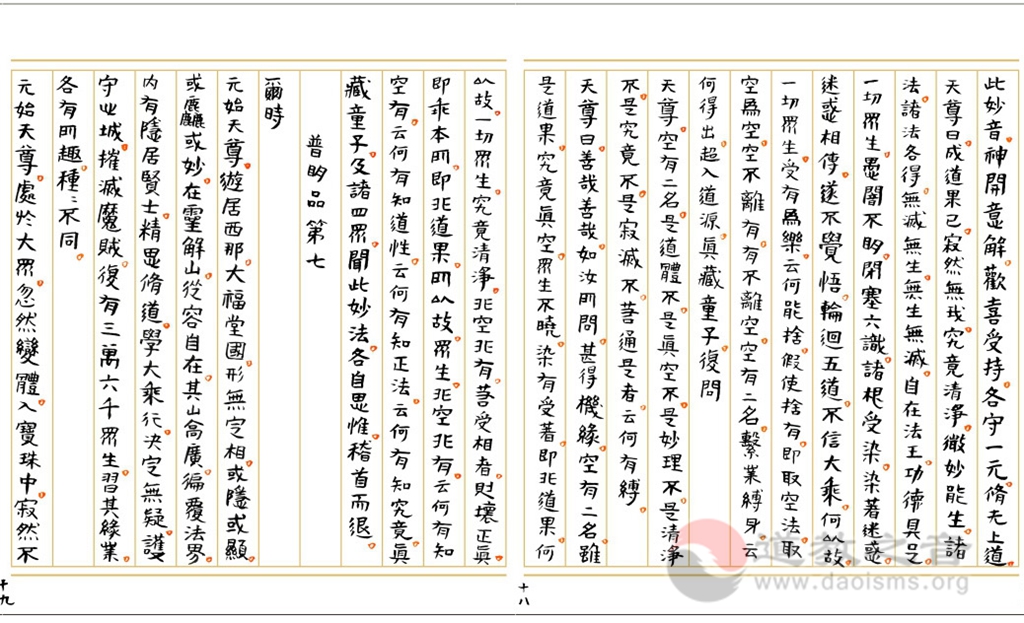 此妙音。神開意解。歡喜受持。各守一元。脩无上道。
天尊曰。成道果已。寂然無我。究竟清淨。微妙能生。諸
法。諸法各得。無滅無生。無生無滅。自在法王。功德具足。
一切眾生。愚闇不明。閉塞六識。諸根受染。染著迷惑。
迷惑相傳。遂不覺悟。輪迴五道。不信大乘。何以故。
一切眾生。受有為樂。云何能捨。假使捨有。即取空法。取
空為空。空不離有。有不離空。空有二名。繫業縛身。云
何得出。超入道源。真藏童子。復問
天尊。空有二名。是道體不。是真空不。是妙理不。是清淨
不。是究竟不。是寂滅不。菩通是者。云何有縛。
天尊曰。善哉善哉。如汝所問。甚得機緣。空有二名。雖
是道果。究竟真空。眾生不曉。染有受著。即非道果。何
十八
以故。一切眾生。究竟清淨。非空非有。菩受相者。則壞正真。
即乖本所。即非道果。所以故。眾生非空非有。云何有知
空有。云何有知道性。云何有知正法。云何有知究竟。真
藏童子。及諸四眾。聞此妙法。各自思惟。稽首而退。
普明品第七
爾時
元始天尊。遊居西那。大福堂國。形無定相。或隱或顯。
或麤或妙。在靈解山。從容自在。其山高廣。徧覆法界。
內有隱居賢士。精思脩道。學大乘行。決定無疑。護
守心城。摧滅魔賊。復有三萬六千眾生。習其緣業。
各有所趣。種〻不同。
元始天尊。處於大眾。忽然變體。入寶珠中。寂然不
十九
道教之音
www.daoisms.org